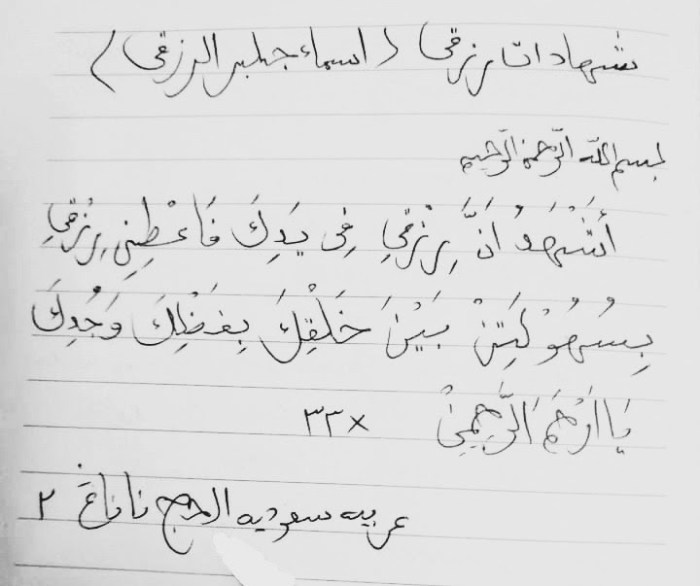 شهادات رزقي (اسماء جلبر الرزقي)
بسم الله الرّحمن الرّحيم
أَشْهَدُ اَنَّ رِزْقِي فِى يَدِكَ فَاعْطِنِى رِزْقِي
بِسُهُوْلَتِنْ بَيْنَ خَلْقِكَ بِفَضْلِكَ وَجُدِكَ
يَا اَرْحَمَ الرَّحِمِيْنْ ×٣٣
عربيه سعوديه الحج ناناغ ٢